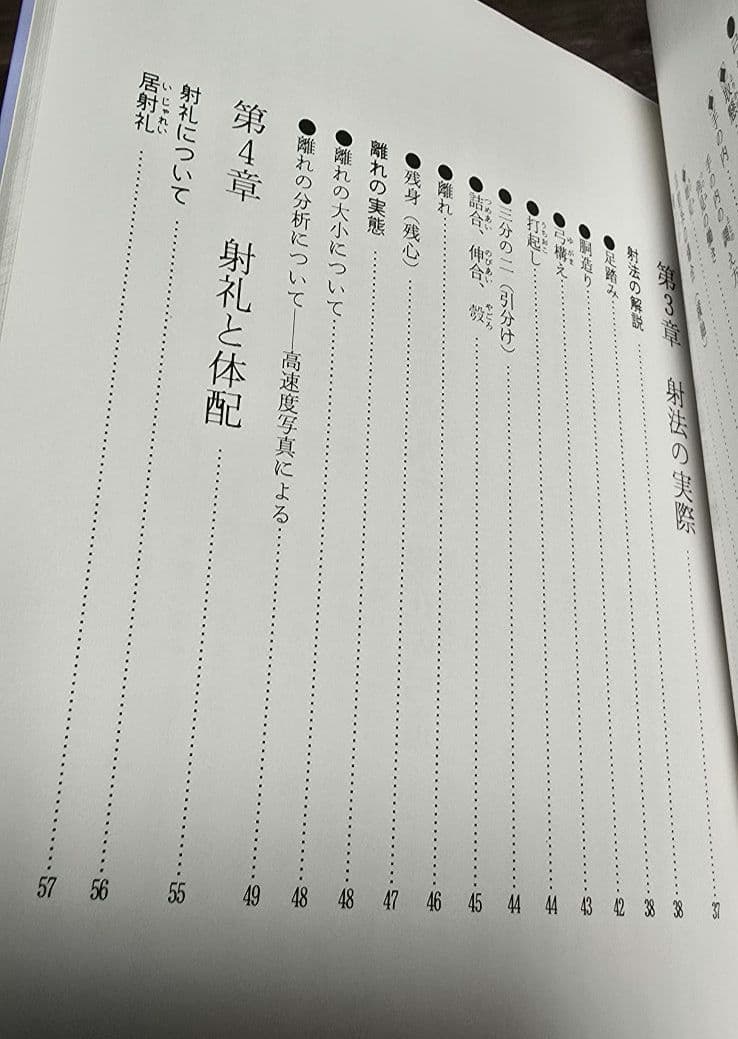 ■手の内
第3章 射法の実際 37
射法の解説 38
●足踏み 38
●胴造り 42
ゆがま
●弓構え 43
うちおこ
●打起し 44
●三分の二（引分け） 44
つめあい のびあい やごろ
●詰合、伸合、彀 45
●離れ 46
●残身（残心） 47
離れの実態 48
●離れの大小について 48
●離れの分析について──高速度写真による 49
第4章 射礼と体配 55
射礼について 56
いじゃれい
居射礼 57